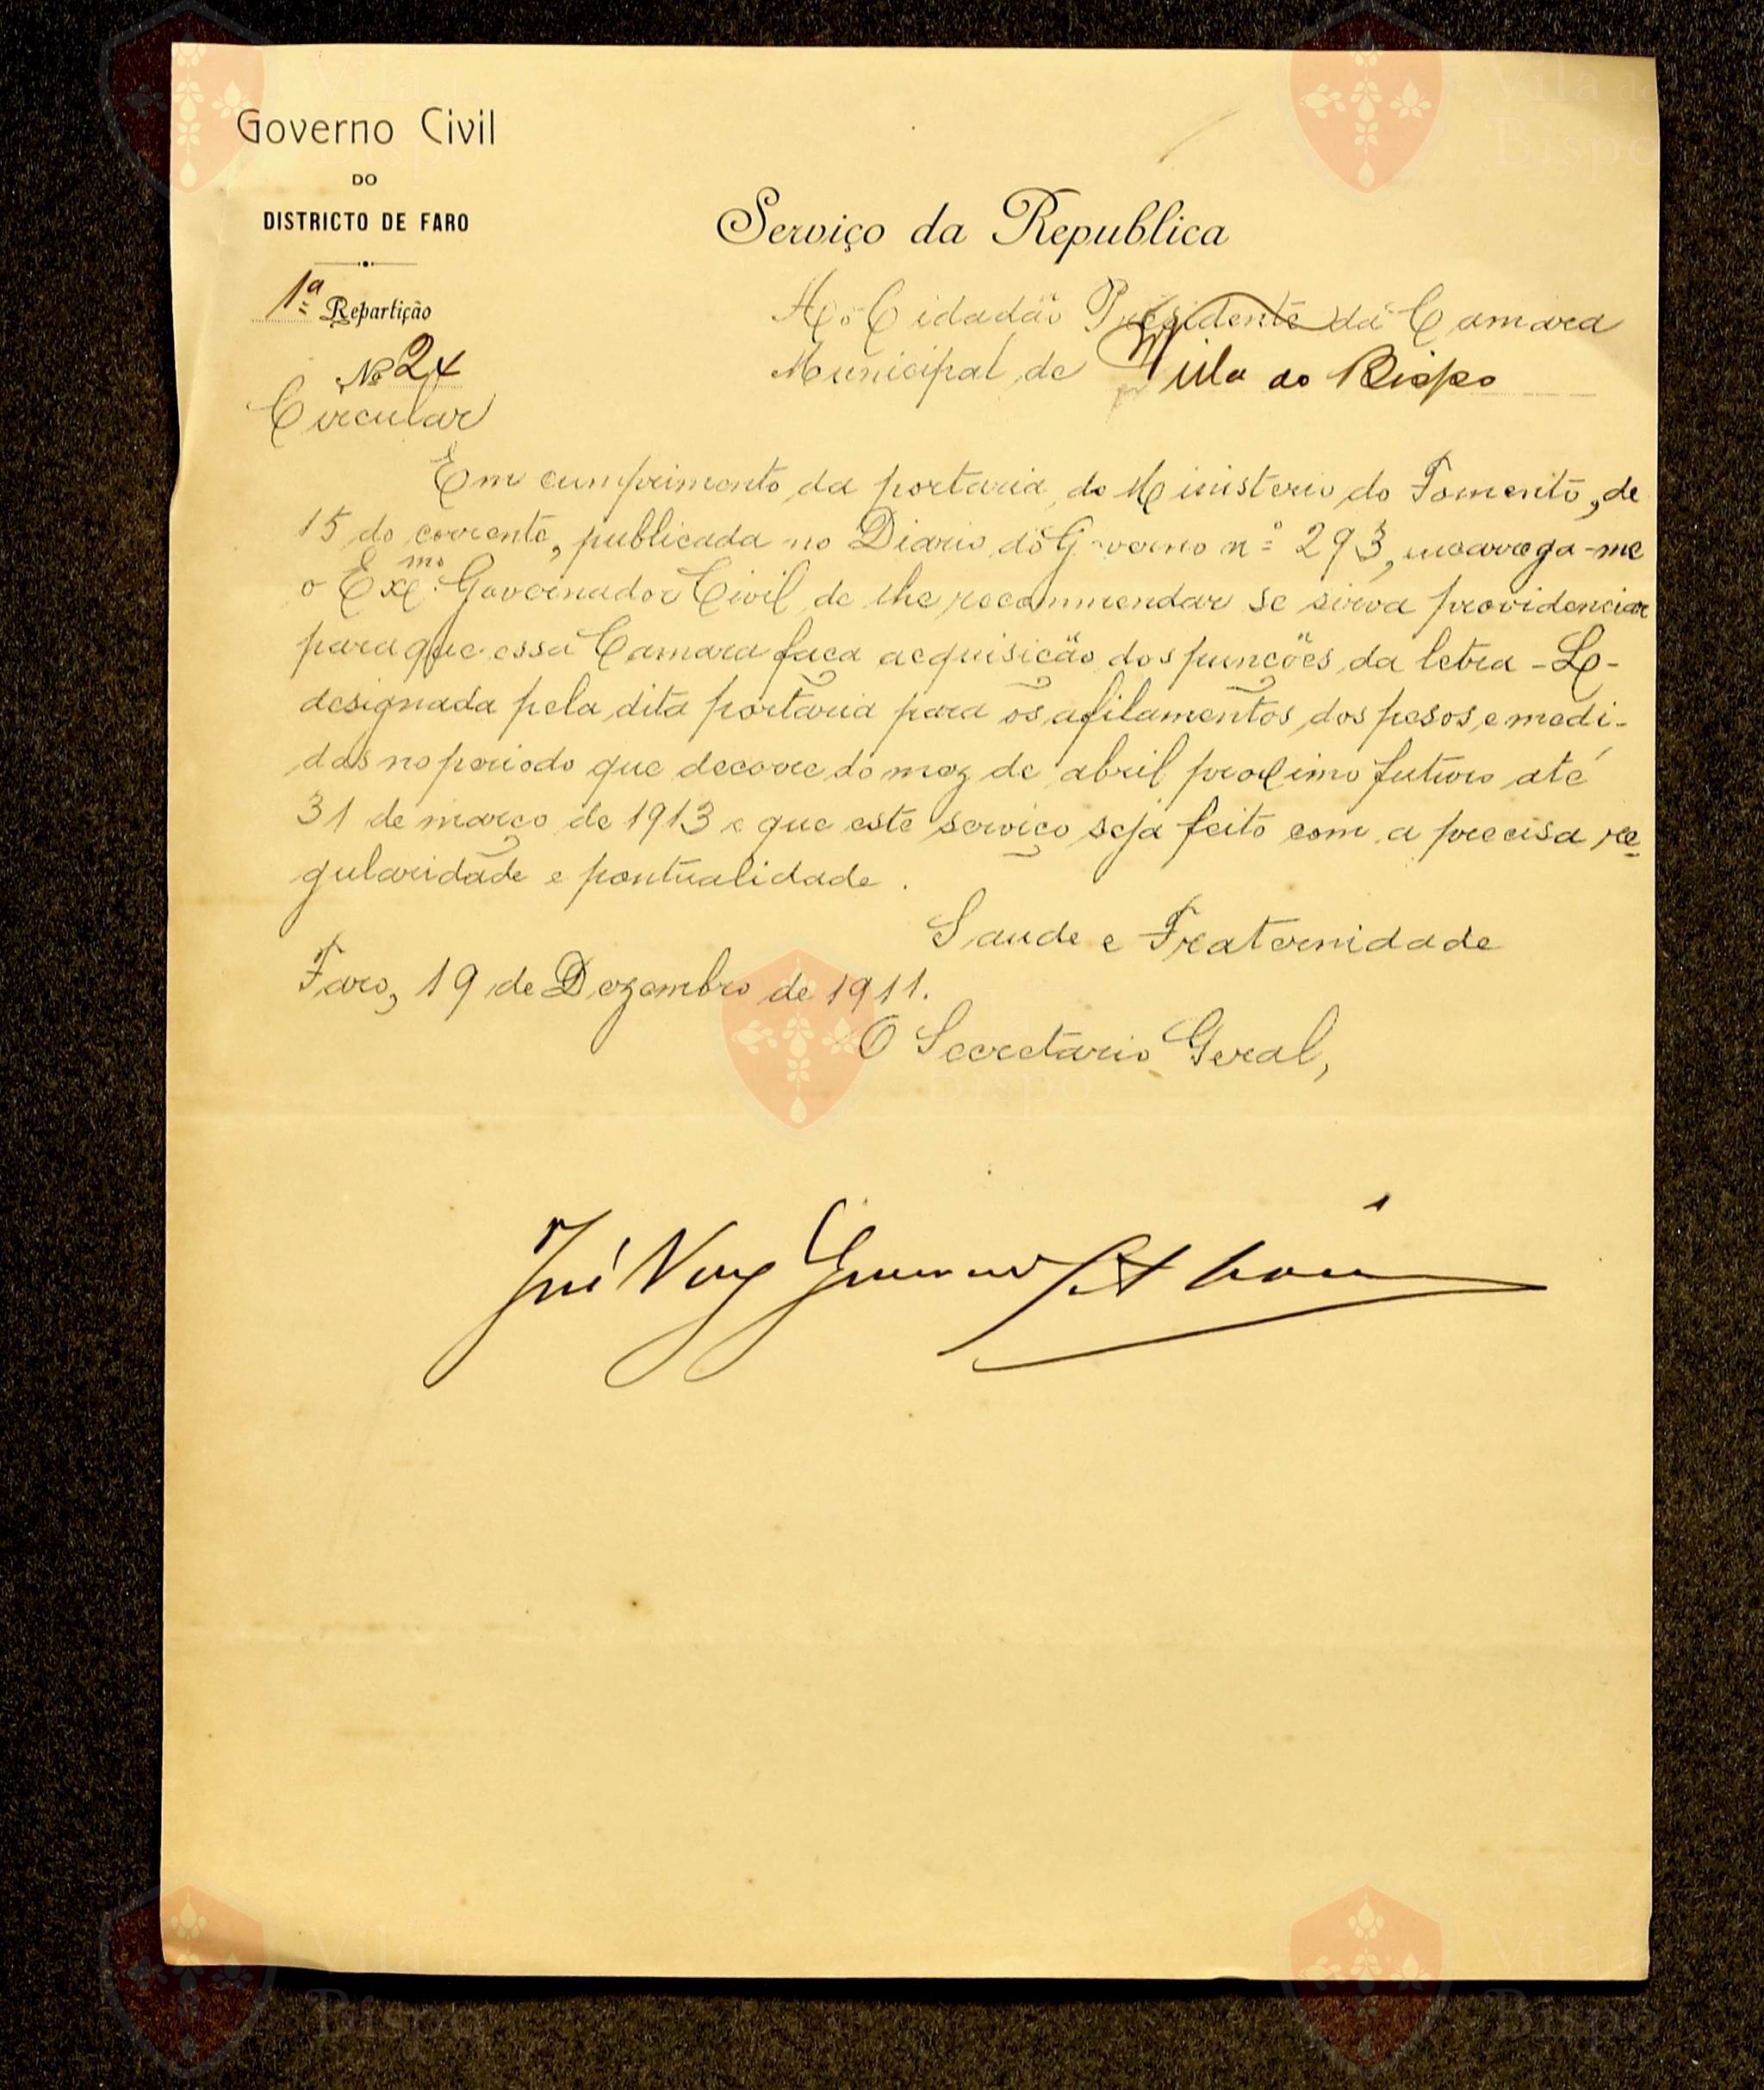 Governo Civil
DO
DISTRICTO DE FARO
1ª Repartição
Nº 24
Circular
Serviço da Republica
Ao Cidadão Presidente da Camara
Municipal de Villa do Bispo
Em cumprimento da portaria do Ministerio do Fomento, de
15 do corrente, publicada no Diario do Governo nº 293, encarrega-me
o Exmo. Governador Civil de lhe recommendar se sirva providenciar
para que essa Camara faça acquisição dos punções da letra -L-
designada pela dita portaria para os afilamentos dos pesos e medi-
das no periodo que decorre do mez de abril proximo futuro até
31 de março de 1913 e que este serviço seja feito com a precisa re-
gularidade e pontualidade.
Saude e Fraternidade
Faro, 19 de Dezembro de 1911.
O Secretario Geral,
José Vaz
Vila do
Bispo